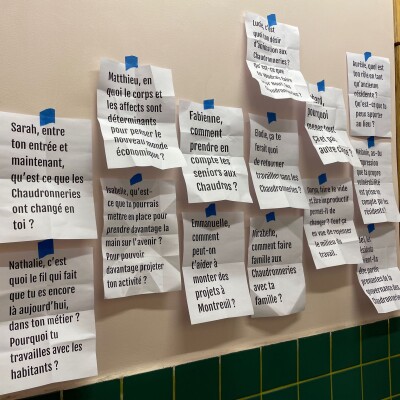 Sarah, entre
ton entrée et
maintenant,
qu'est-ce que les
Chaudronneries
ont changé en
toi ?
Nathalie, c'est
quoi le fil qui fait
que tu es encore
là aujourd'hui,
dans ton métier ?
Pourquoi tu
travailles avec les
habitants ?
Matthieu, en
quoi le corps et
les affects sont
déterminants
pour penser le
nouveau monde
économique ?
Isabelle, qu'est-
ce que tu pourrais
mettre en place pour
prendre davantage la
main sur l'avenir ?
Pour pouvoir
davantage projeter
ton activité ?
Fabienne,
comment
prendre en
compte les
seniors aux
Chaudros ?
Emmanuelle,
comment
peut-on
t'aider à
monter des
projets à
Montreuil ?
Lucie, c'est
quoi ton désir
d'animation aux
Chaudronneries ?
Qu'est-ce que
Elodie, ça te
ferait quoi
de retourner
travailler sans les
Chaudronneries ?
Mirabelle,
comment faire
famille aux
Chaudronneries
avec ta
famille ?
pourquoi
le vide
et les improductifs
permet-il de
changer ?
en vue de repenser
le milieu du
travail.
Aurélie, quel est
ton rôle en tant
qu'ancienne
résidente ?
Qu'est-ce que tu
peux apporter
au lieu ?
que ta propre
vulnérabilité
est prise en
compte par les
résidents ?
gouvernance des
Chaudronneries